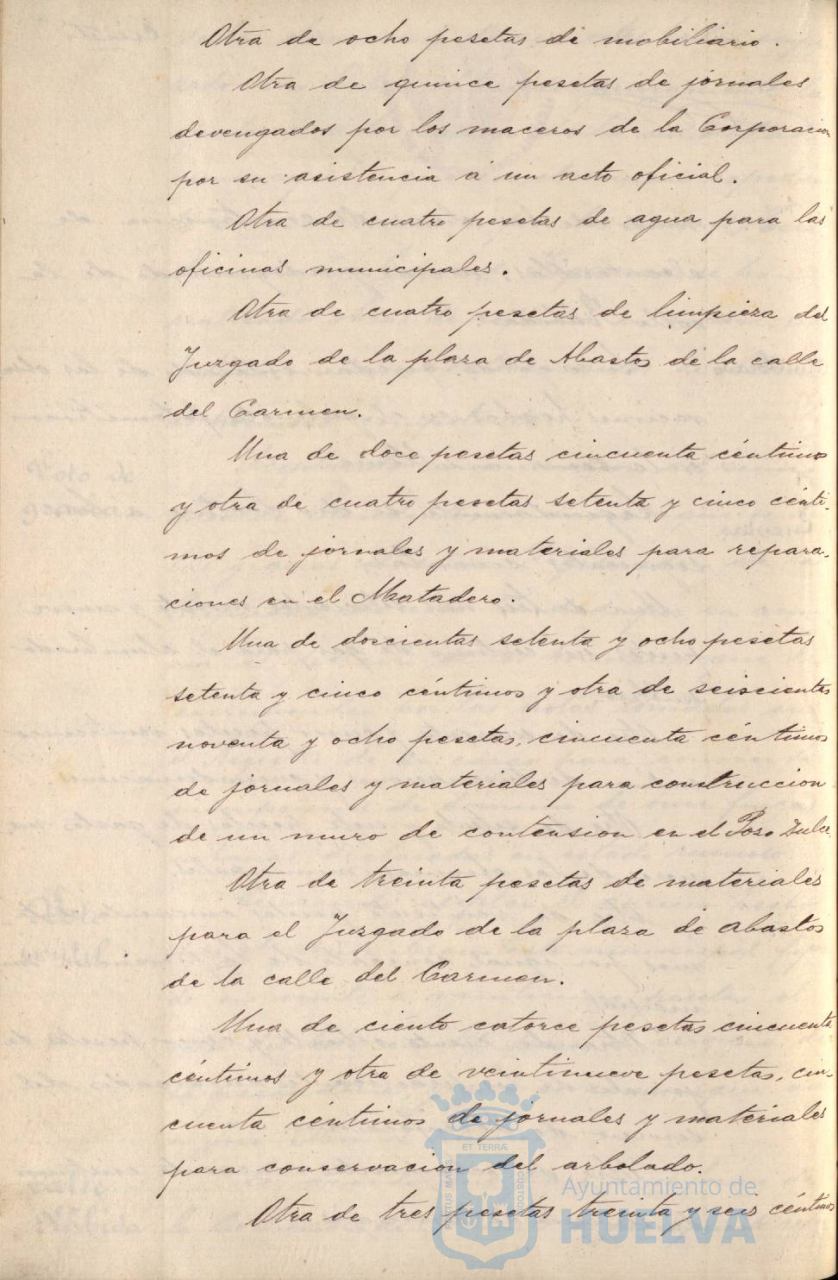 Otra de ocho pesetas de mobiliario.
Otra de quince pesetas de jornales
devengados por los maceros de la Corporacion
por su asistencia á un acto oficial.
Otra de cuatro pesetas de agua para las
oficinas municipales.
Otra de cuatro pesetas de limpieza del
Juzgado de la plaza de Abastos de la calle
del Carmen.
Una de doce pesetas cincuenta céntimos
y otra de cuatro pesetas setenta y cinco cénti-
mos de jornales y materiales para repara-
ciones en el Matadero.
Una de doscientas setenta y ocho pesetas
setenta y cinco céntimos y otra de seiscientas
noventa y ocho pesetas, cincuenta céntimos
de jornales y materiales para construccion
de un muro de contension en el Pozo Dulce.
Otra de treinta pesetas de materiales
para el Juzgado de la plaza de abastos
de la calle del Carmen.
Una de ciento catorce pesetas cincuenta
céntimos y otra de veintinueve pesetas, cin-
cuenta céntimos de jornales y materiales
para conservacion del arbolado.
Otra de tres pesetas treinta y seis céntimos
PORTUS MARIS ET TERRÆ CUSTODIA
Ayuntamiento de
HUELVA